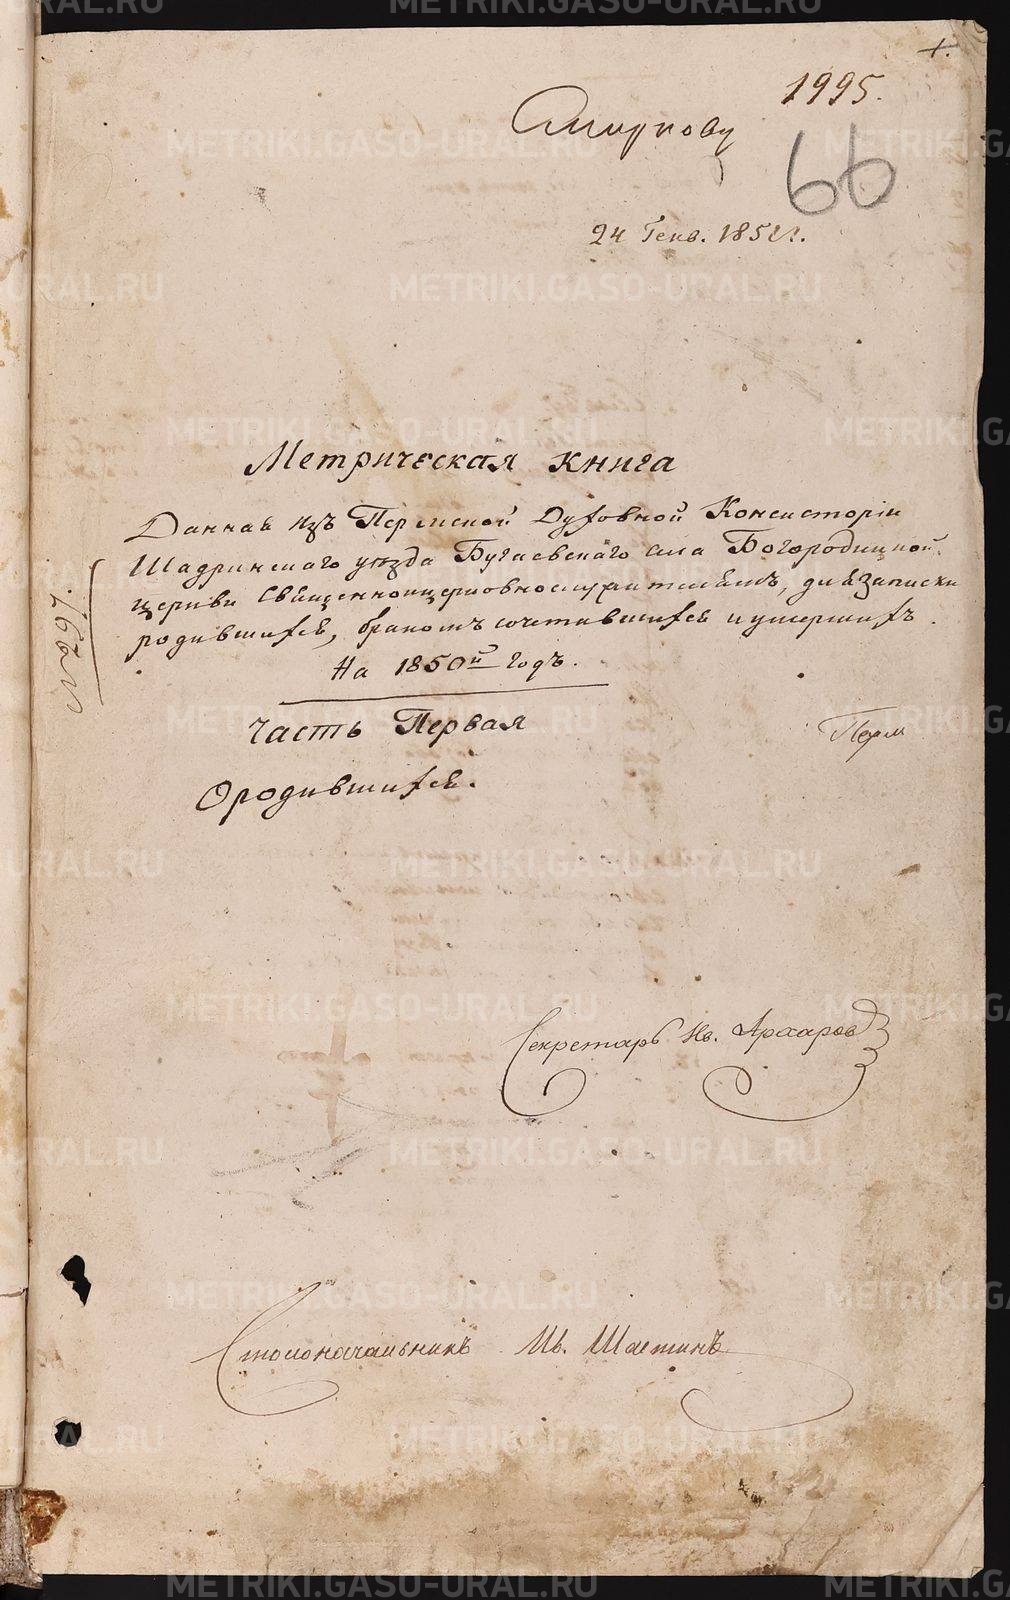 1995.
Смирнову
66
24 Генв. 1851 г.
Метрическая книга
Данная изъ Пермской Духовной Консисторіи
Шадринскаго уѣзда Бугаевскаго села Богородицкой
церкви Священноцерковнослужителямъ, для записки
родившихся, бракомъ сочетавшихся и умершихъ.
На 1850й годъ.
Часть Первая
О родившихся.
№ 897.
Перм
Секретарь Ив. Архаровъ
Столоначальникъ Ив. Шастинъ
METRIKI.GASO-URAL.RU